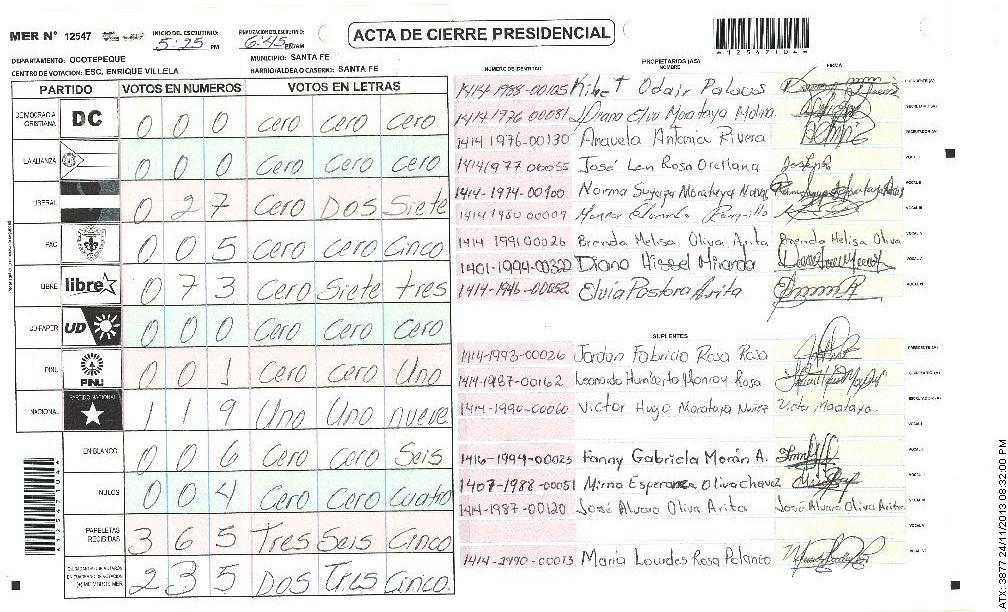 MER N° 12547
INICIO DEL ESCRUTINIO: 5:25 PM
FINALIZACION DEL ESCRUTINIO: 6:45 PM/AM
ACTA DE CIERRE PRESIDENCIAL
A125471044
DEPARTAMENTO: OCOTEPEQUE
MUNICIPIO: SANTA FE
CENTRO DE VOTACION: ESC. ENRIQUE VILLELA
BARRIO/ALDEA O CASERIO: SANTA FE
PARTIDO VOTOS EN NUMEROS VOTOS EN LETRAS
DEMOCRACIA CRISTIANA DC 0 0 0 Cero Cero Cero
LA ALIANZA 0 0 0 Cero Cero Cero
LIBERAL 0 2 7 Cero Dos Siete
PAC 0 0 5 Cero Cero Cinco
LIBRE libre 0 7 3 Cero Siete tres
UD-FAPER UD 0 0 0 Cero Cero Cero
PINU PINU 0 0 1 Cero Cero Uno
NACIONAL PARTIDO NACIONAL 1 1 9 Uno Uno nueve
EN BLANCO 0 0 6 Cero Cero Seis
NULOS 0 0 4 Cero Cero Cuatro
PAPELETAS RECIBIDAS 3 6 5 Tres Seis Cinco
CIUDADANOS QUE VOTARON EN CUADERNO DE VOTACION (+) MIEMBROS MER 2 3 5 Dos Tres Cinco
A125471044
NUMERO DE IDENTIDAD PROPIETARIOS (AS) NOMBRE FIRMA
1414-1988-00105 Odair Palacios PRESIDENTE(A)
1414-1976 00081 Diana Elva Morataya Molina SECRETARIO(A)
1414 1976-00130 Anavela Antonia Rivera ESCRUTADOR (A)
1414 1977 00055 José Len Rosa Orellana VOCAL I
1414-1974-00900 Norma Suyapa Morataya VOCAL II
1414 1980 00009 VOCAL III
1414 1991 00026 Brenda Melisa Oliva Arita Brenda Melisa Oliva VOCAL IV
1401-1994-00322 Diana Hissel Miranda VOCAL V
1414-1946-00052 Elvia Pastora Arita VOCAL VI
SUPLENTES
1414-1993-00026 Jordan Fabricio Rosa Rosa PRESIDENTE(A)
1414-1987-00162 Leonardo Humberto Monroy Rosa SECRETARIO (A)
1414-1990-00060 Victor Hugo Morataya Nuñez Victor Morataya. ESCRUTADOR (A)
VOCAL I
1416-1994-00025 Fanny Gabriela Morán A. VOCAL II
1407-1988-00051 Mirna Esperanza Oliva Chavez VOCAL III
1414-1987-00120 José Alvaro Oliva Arita José Alvaro Oliva Arita VOCAL IV
VOCAL V
1414-1990-00073 Maria Lourdes Rosa Polanco VOCAL VI
ATX: 3877 24/11/2013 08:32:00 PM